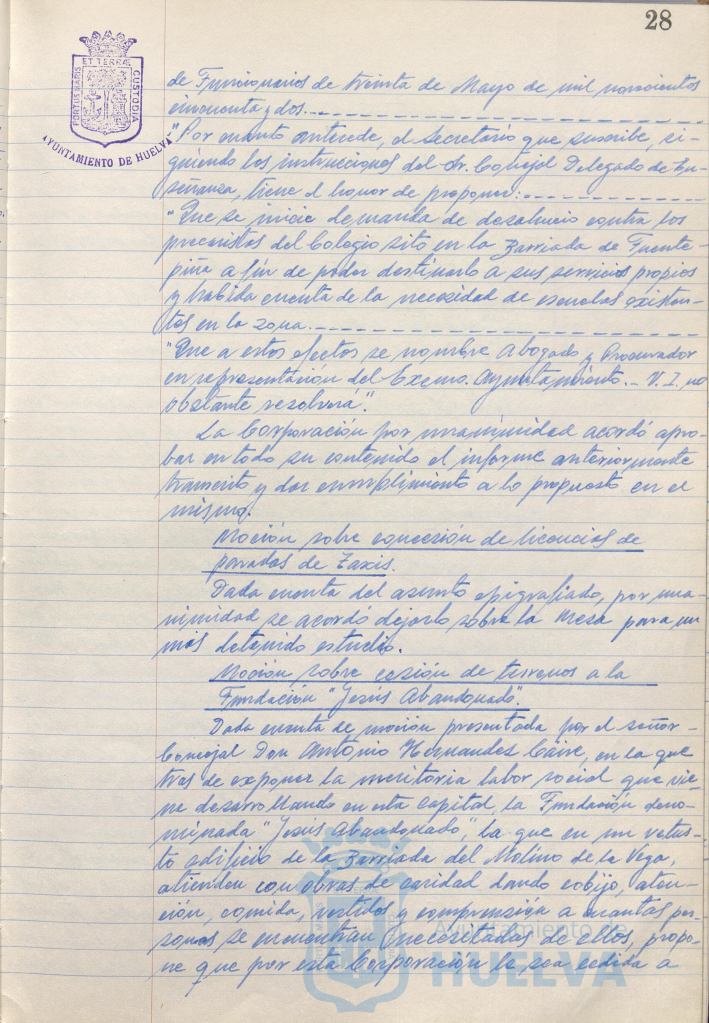 28
PORTUS MARIS
ET TERRÆ
CUSTODIA
AYUNTAMIENTO DE HUELVA
de Funcionarios de treinta de Mayo de mil novecientos
cincuenta y dos.
"Por cuanto antecede, el Secretario que suscribe, si-
guiendo las instrucciones del Sr. Concejal Delegado de En-
señanza, tiene el honor de proponer:
"Que se inicie demanda de desahucio contra los
precaristas del Colegio sito en la Barriada de Fuente-
piña a fin de poder destinarlo a sus servicios propios
y habida cuenta de la necesidad de escuelas existen-
tes en la zona.
"Que a estos efectos se nombre Abogado y Procurador
en representación del Excmo. Ayuntamiento.- V. I. no
obstante resolverá".
La Corporación por unanimidad acordó apro-
bar en todo su contenido el informe anteriormente
transcrito y dar cumplimiento a lo propuesto en el
mismo.
Moción sobre concesión de licencias de
paradas de Taxis.
Dada cuenta del asunto epigrafiado, por una-
nimidad se acordó dejarlo sobre la Mesa para un
más detenido estudio.
Moción sobre cesión de terrenos a la
Fundación "Jesús Abandonado".
Dada cuenta de moción presentada por el señor
Concejal Don Antonio Hernandez Caire, en la que
tras de exponer la meritoria labor social que vie-
ne desarrollando en esta Capital, la Fundación deno-
minada "Jesús Abandonado", la que en un vetus-
to edificio de la Barriada del Molino de la Vega,
atienden con obras de caridad dando cobijo, aten-
ción, comida, vestidos y comprensión a cuantas per-
sonas se encuentran necesitadas de ellos, propo-
ne que por esta Corporación le sea cedida a
Ayuntamiento de
HUELVA